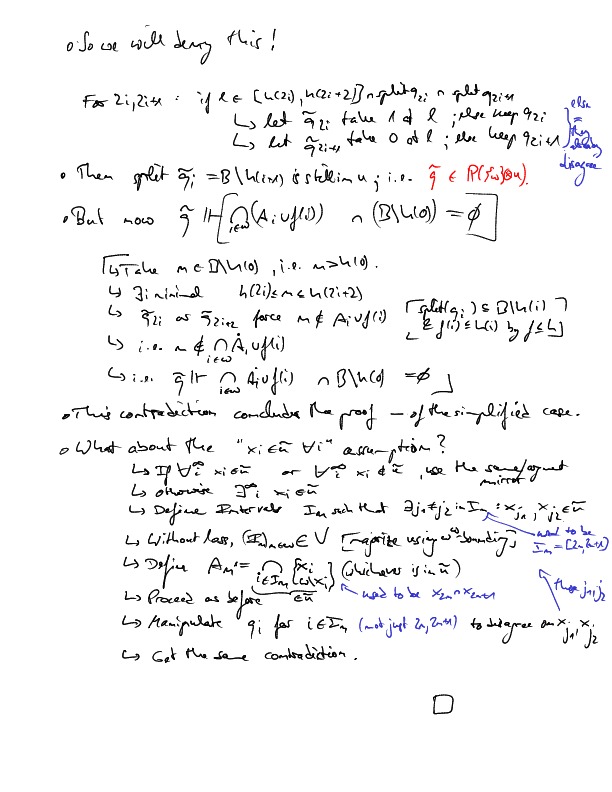 o So we will deny this!
For 2i, 2i+1 : if l ∈ [h(2i), h(2i+2)] ∩ split q_2i ∩ split q_2i+1
↳ let q̃_2i take 1 at l ; else keep q_2i
↳ let q̃_2i+1 take 0 at l ; else keep q_2i+1
else = they already disagree
• Then split q̃_i = B\h(i) is still in u ; i.e. q̃ ∈ P(
• But now q̃ ⊩ [⋂_{i∈ω}(Ȧ_i ∪ f(i)) ∩ (B\h(0)) = ∅]
⌈↳ Take m ∈ B\h(0), i.e. m > h(0).
↳ ∃i minimal h(2i) ≤ m ≤ h(2i+2)
↳ q̃_2i or q̃_2i+2 force m ∉ A_i ∪ f(i) [split(q_i) ⊆ B\h(i) & f(i) ≤ h(i) by f ≤ h]
↳ i.e. m ∉ ⋂_{i∈ω} Ȧ_i ∪ f(i)
↳ i.e. q̃ ⊩ ⋂_{i∈ω} Ȧ_i ∪ f(i) ∩ B\h(0) = ∅ ⌋
• This contradiction concludes the proof — of the simplified case.
o What about the "x_i ∈ ũ ∀i" assumption?
↳ If ∀^∞ i x_i ∈ ũ or ∀^∞ i x_i ∉ ũ, use the same/mirror argument
↳ otherwise ∃^∞ i x_i ∈ ũ
↳ Define Intervals I_m such that ∃ j_1 ≠ j_2 in I_m : x_{j_1}, x_{j_2} ∈ ũ
used to be I_m = [2n, 2n+1]
↳ Without loss, (I_m)_{m∈ω} ∈ V [majorize using ω^ω-bounding]
↳ Define A_m := ⋂_{i∈I_m} {x_i, ω\x_i} (whichever is in ũ)
∈ ũ
used to be x_2n ∩ x_2n+1
these j_1, j_2
↳ Proceed as before
↳ Manipulate q_i for i ∈ I_m (not just 2n, 2n+1) to disagree on x_{j_1}, x_{j_2}
↳ Get the same contradiction.
□